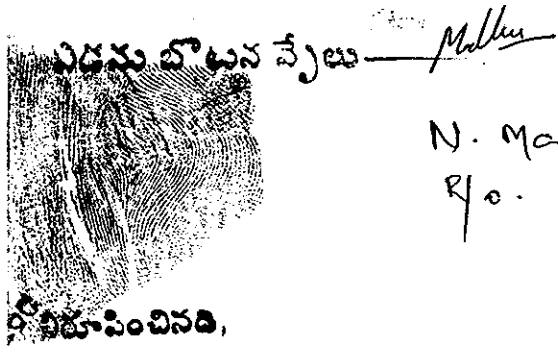 ఎడమ బొటన వ్రేలు
N. Ma
R/o.
నిరూపించినది,